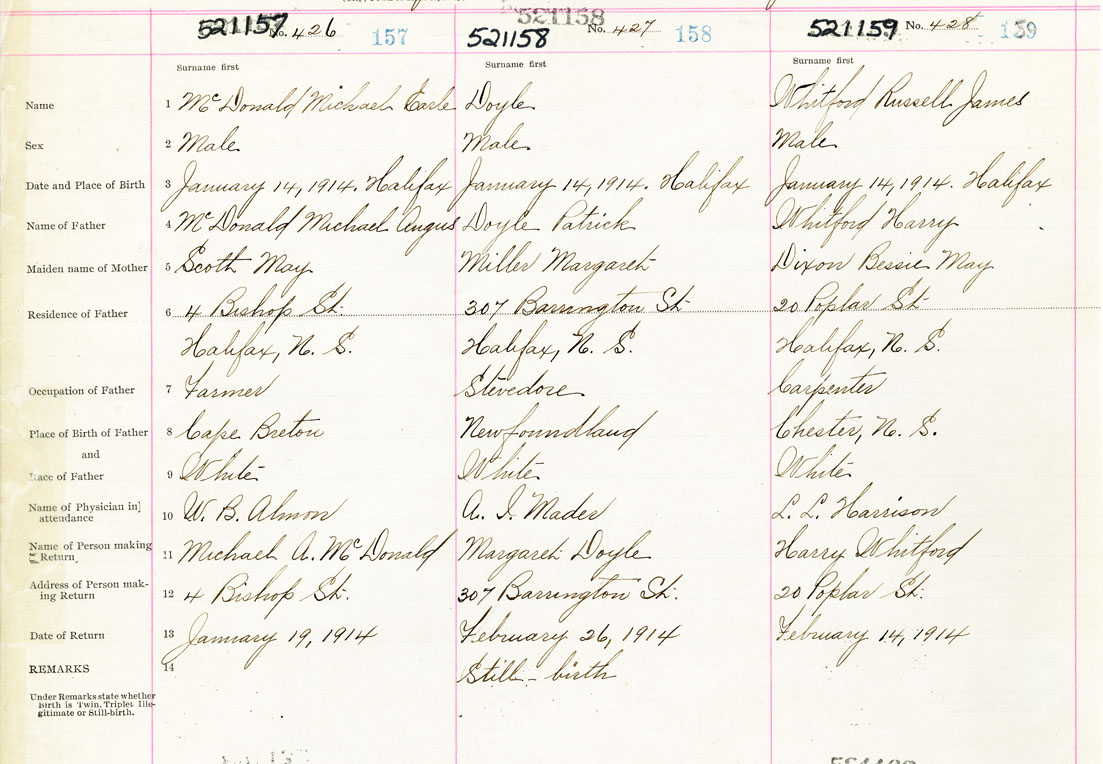 521158
521157 No. 426 157
521158 No. 427 158
521159 No. 428 159
Surname first Surname first Surname first
Name 1 McDonald Michael Earle Doyle Whitford Russell James
Sex 2 Male Male Male
Date and Place of Birth 3 January 14, 1914. Halifax January 14, 1914. Halifax January 14, 1914. Halifax
Name of Father 4 McDonald Michael Angus Doyle Patrick Whitford Harry
Maiden name of Mother 5 Scott May Miller Margaret Dixon Bessie May
Residence of Father 6 4 Bishop St. 307 Barrington St. 20 Poplar St.
Halifax, N. S. Halifax, N. S. Halifax, N. S.
Occupation of Father 7 Farmer Stevedore Carpenter
Place of Birth of Father 8 Cape Breton Newfoundland Chester, N. S.
and
Race of Father 9 White White White
Name of Physician in]
attendance 10 W. B. Almon A. I. Mader L. L. Harrison
Name of Person making
Return 11 Michael A. McDonald Margaret Doyle Harry Whitford
Address of Person mak-
ing Return 12 4 Bishop St. 307 Barrington St. 20 Poplar St.
Date of Return 13 January 19, 1914 February 26, 1914 February 14, 1914
REMARKS 14 Still-birth
Under Remarks state whether
Birth is Twin, Triplet Ille-
gitimate or Still-birth.